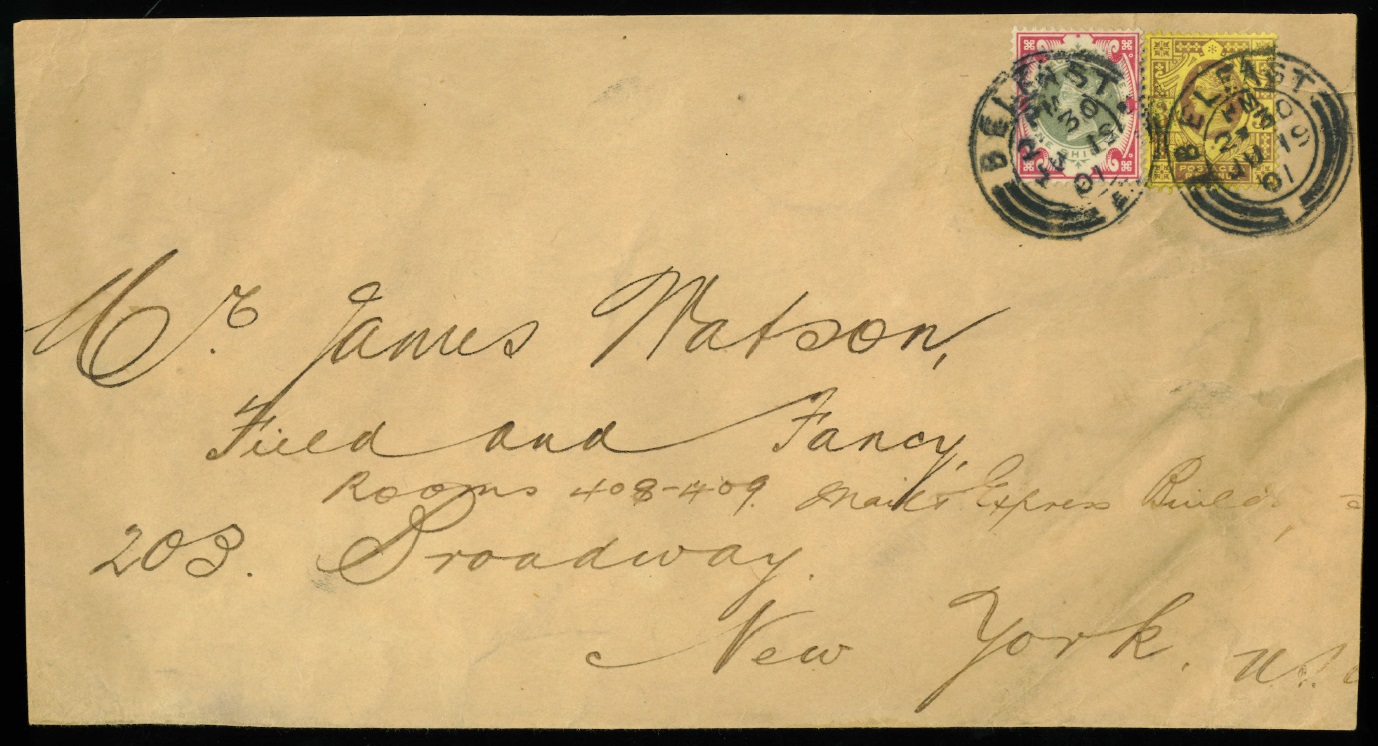 BELFAST
30
JU 19
01
BELFAST
2 30
JU 19
01
POSTAGE
Mr. James Watson,
Field and Fancy,
Rooms 408-409. Mail & Express Build
203. Broadway.
New York. U.S.